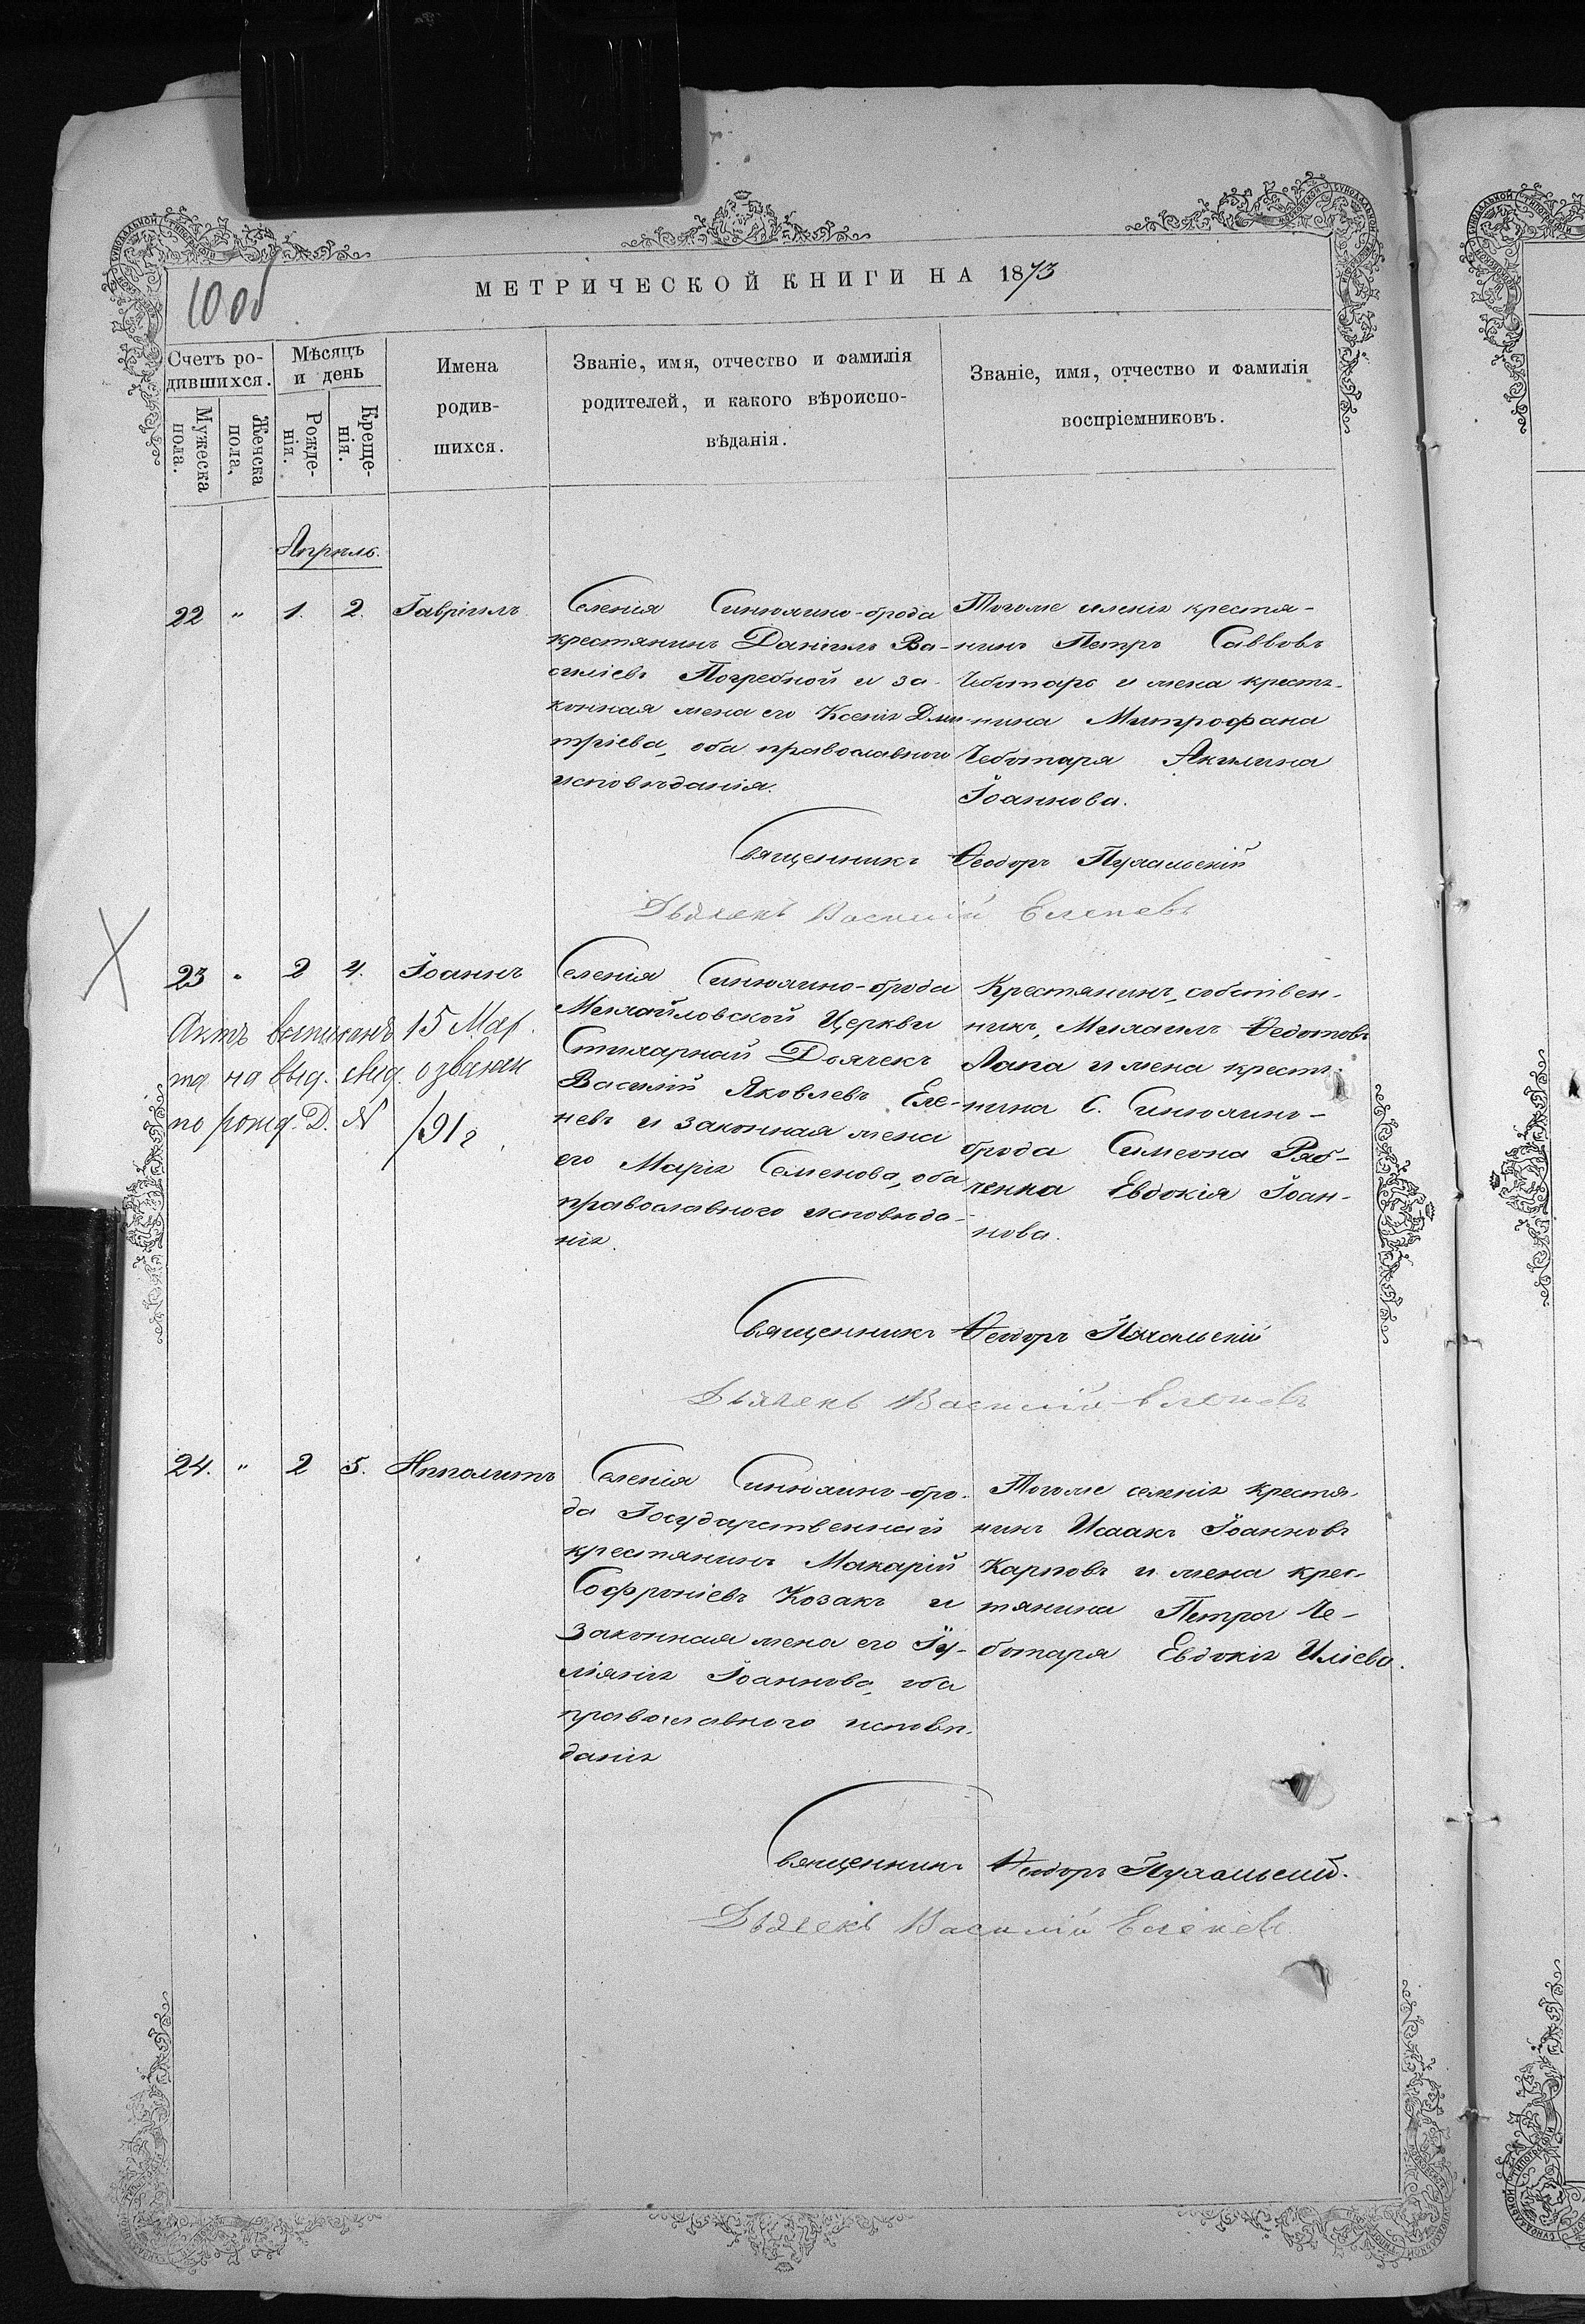 100об
МЕТРИЧЕСКОЙ КНИГИ НА 1873
Счетъ ро-
дившихся.
Мужеска
пола.
Женска
пола,
Мѣсяцъ
и день
Рожде-
нія.
Креще-
нія.
Имена
родив-
шихся.
Званіе, имя, отчество и фамилія
родителей, и какого вѣроиспо-
вѣданія.
Званіе, имя, отчество и фамилія
воспріемниковъ.
Апрѣль.
22 " 1. 2. Гавріилъ
Селенія Синюхино-брода
крестянинъ Даніилъ Ва-
силіевъ Погребной и за-
конная жена его Ксенія Дми-
тріева, оба православного
исповѣданія.
Тогоже селенія крестя-
нинъ Петръ Саввовъ
Чеботарь и жена крестя-
нина Митрофана
Чеботаря Акилина
Іоаннова.
Священникъ Ѳеодоръ Пухальскій
Дьячекъ Василій Еленевъ
23 " 2 4. Іоаннъ
Актъ выписанъ 15 Мар.
та на выд. свид. о званіи
по рожд. Д. N /91 г
Селенія Синюхино-брода
Михайловской Церкви
Стихарный Дьячекъ
Василій Яковлевъ Еле-
невъ и законная жена
его Марія Семенова, оба
православного исповѣда-
нія.
Крестянинъ, собствен-
никъ, Михаилъ Ѳедотовъ
Лапа и жена крестя-
нина С. Синюхино-
брода Симеона Ряб-
ченка Евдокія Іоан-
нова.
Священникъ Ѳеодоръ Пухальскій
Дьячекъ Василій Еленевъ
24. " 2 5. Ипполитъ
Селенія Синюхино-бро-
да Государственный
крестянинъ Макарій
Софроніевъ Козакъ и
законная жена его Іу-
ліянія Іоаннова, оба
православного исповѣ-
данія
Тогоже селенія крестя-
нинъ Исаакъ Іоанновъ
Карповъ и жена крес-
тянина Петра Че-
ботаря Евдокія Иліева.
Священникъ Ѳеодоръ Пухальскій.
Дьячекъ Василій Еленевъ